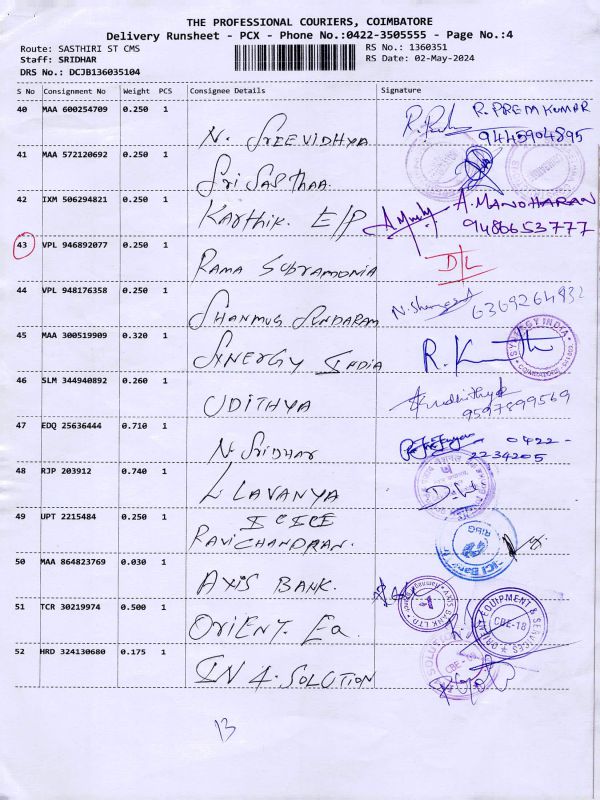 THE PROFESSIONAL COURIERS, COIMBATORE
Delivery Runsheet - PCX - Phone No.:0422-3505555 - Page No.:4
Route: SASTHIRI ST CMS
RS No.: 1360351
Staff: SRIDHAR
RS Date: 02-May-2024
DRS No.: DCJB136035104
S No Consignment No Weight PCS Consignee Details Signature
40 MAA 600254709 0.250 1 N. SREEVIDHYA R. PREM KUMAR
9445904895
41 MAA 572120692 0.250 1 Sri SASTHAA
42 IXM 506294821 0.250 1 Karthik. E/P A. MANOHARAN
9486653777
43 VPL 946892077 0.250 1 RAMA SUBRAMONIA D/L
44 VPL 948176358 0.250 1 SHANMUG SUNDARAM 6369264932
45 MAA 300519909 0.320 1 SYNERGY INDIA SYNERGY INDIA
46 SLM 344940892 0.260 1 UDITHYA
9597899569
47 EDQ 25636444 0.710 1 N. SRIDHAR 0422-
2234205
48 RJP 203912 0.740 1 L. LAVANYA
49 UPT 2215484 0.250 1 ICICI
RAVICHANDRAN. ICICI Bank
50 MAA 864823769 0.030 1 AXIS BANK. AXIS BANK LTD
51 TCR 30219974 0.500 1 ORIENT. Eq ORIENT EQUIPMENT & SERVICES
CBE-18
52 HRD 324130680 0.175 1 IN 4. SOLUTION
13